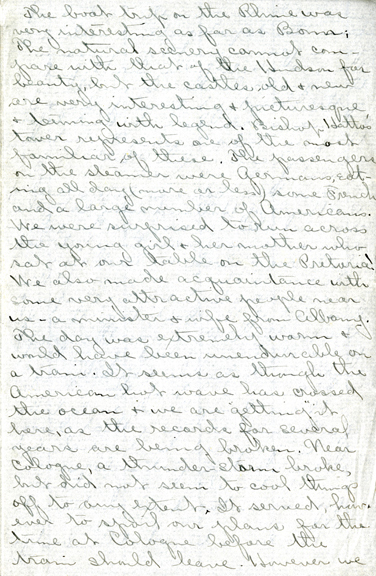 The boat trip on the Rhine was
very interesting as far as Bonn;
The natural scenery cannot com-
pare with that of the Hudson for
beauty, but the castles, old & new
are very interesting & picturesque,
& teeming with legend. Bishop Hatto's
tower represents one of the most
familiar of these. The passengers
on the steamer were Germans, eat-
ing all day (more or less) some French
and a large number of Americans.
We were surprised to run across
the young girl & her mother who
sat at our table on the Pretoria!
We also made acquaintance with
some very attractive people near
us - a minister & wife from Albany.
The day was extremely warm &
would have been unendurable on
a train. It seems as though the
American hot wave has crossed
the ocean & we are getting it
here, as the records for several
years are being broken. Near
Cologne, a thunder storm broke,
but did not seem to cool things
off to any extent. It served, how-
ever to spoil our plans for the
time at Cologne before the
train should leave. However we